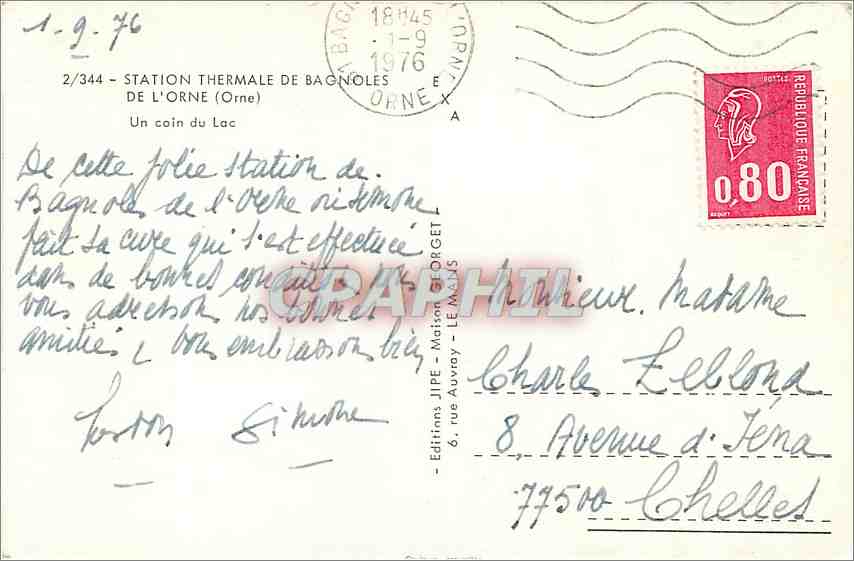 1-9-76
18H45
1-9
1976
ORNE
2/344 - STATION THERMALE DE BAGNOLES
DE L'ORNE (Orne)
Un coin du Lac
E
X
A
POSTES
REPUBLIQUE FRANÇAISE
0,80
BEQUET
De cette jolie station de
Bagnoles de l'Orne où Simone
fait sa cure qui s'est effectuée
dans de bonnes conditions nous
vous adressons nos bonnes
amitiés & vous embrassons bien
Gaston Simone
- Editions JIPE - Maison GEORGET -
6, rue Auvray - LE MANS
CPAPHIL
Monsieur, Madame
Charles Leblond
8, Avenue d'Iéna
77500 Chelles